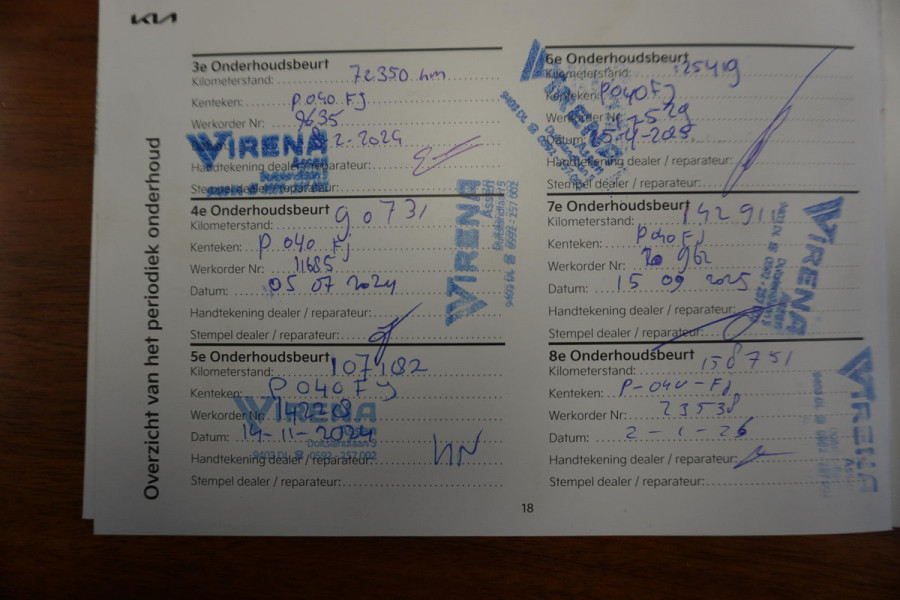 KIA
Overzicht van het periodiek onderhoud
3e Onderhoudsbeurt
Kilometerstand: 72350 km
Kenteken: P040FJ
Werkorder Nr: 9635
2-2024
VIRENA
Assen
Handtekening dealer / reparateur:
Stempel dealer / reparateur:
4e Onderhoudsbeurt
Kilometerstand: 90731
Kenteken: P 040 FJ
Werkorder Nr: 11685
Datum: 05 07 2024
Handtekening dealer / reparateur:
Stempel dealer / reparateur:
VIRENA
Assen
Duitslandlaan 9
5e Onderhoudsbeurt
Kilometerstand: 107182
Kenteken: P040FJ
Werkorder Nr:
Datum: 14-11-2024
Handtekening dealer / reparateur:
Stempel dealer / reparateur:
VIRENA
Duitslandlaan 9
9403 DL 0592 - 257 002
6e Onderhoudsbeurt
Kilometerstand: 125419
Kenteken: P040FJ
Werkorder Nr:
Datum: 25-4-2025
Handtekening dealer / reparateur:
Stempel dealer / reparateur:
VIRENA
Assen
9403 DL
7e Onderhoudsbeurt
Kilometerstand: 142911
Kenteken: P040FJ
Werkorder Nr: 20962
Datum: 15 09 2025
Handtekening dealer / reparateur:
Stempel dealer / reparateur:
VIRENA
Assen
8e Onderhoudsbeurt
Kilometerstand: 158751
Kenteken: P-040-FJ
Werkorder Nr: 23538
Datum: 2-1-26
Handtekening dealer / reparateur:
Stempel dealer / reparateur:
VIRENA
18